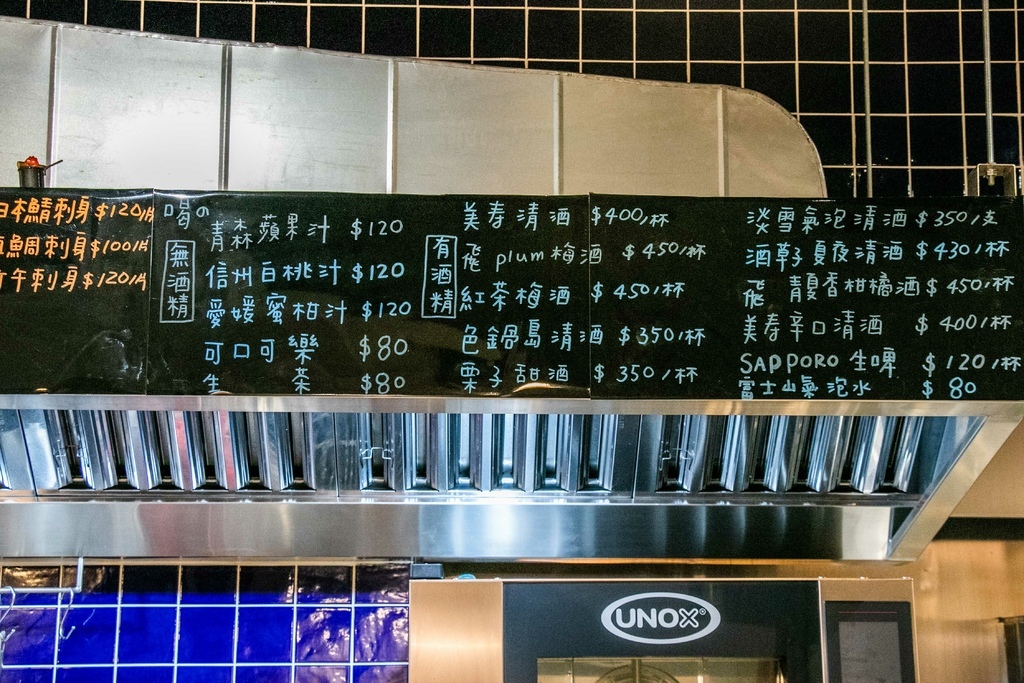 日本鯖刺身$120/片
魚鯛刺身$100/片
竹午刺身$120/片
喝の
無酒精
青森蘋果汁 $120
信州白桃汁 $120
愛媛蜜柑汁 $120
可口可樂 $80
生茶 $80
有酒精
美寿清酒 $400/杯
飛 plum梅酒 $450/杯
紅茶梅酒 $450/杯
色鍋島清酒 $350/杯
栗子甜酒 $350/杯
淡雪氣泡清酒 $350/支
夏夜清酒 $430/杯
飛 香柑橘酒 $450/杯
美寿辛口清酒 $400/杯
SAPPORO 生啤 $120/杯
富士山氣泡水 $80
UNOX®